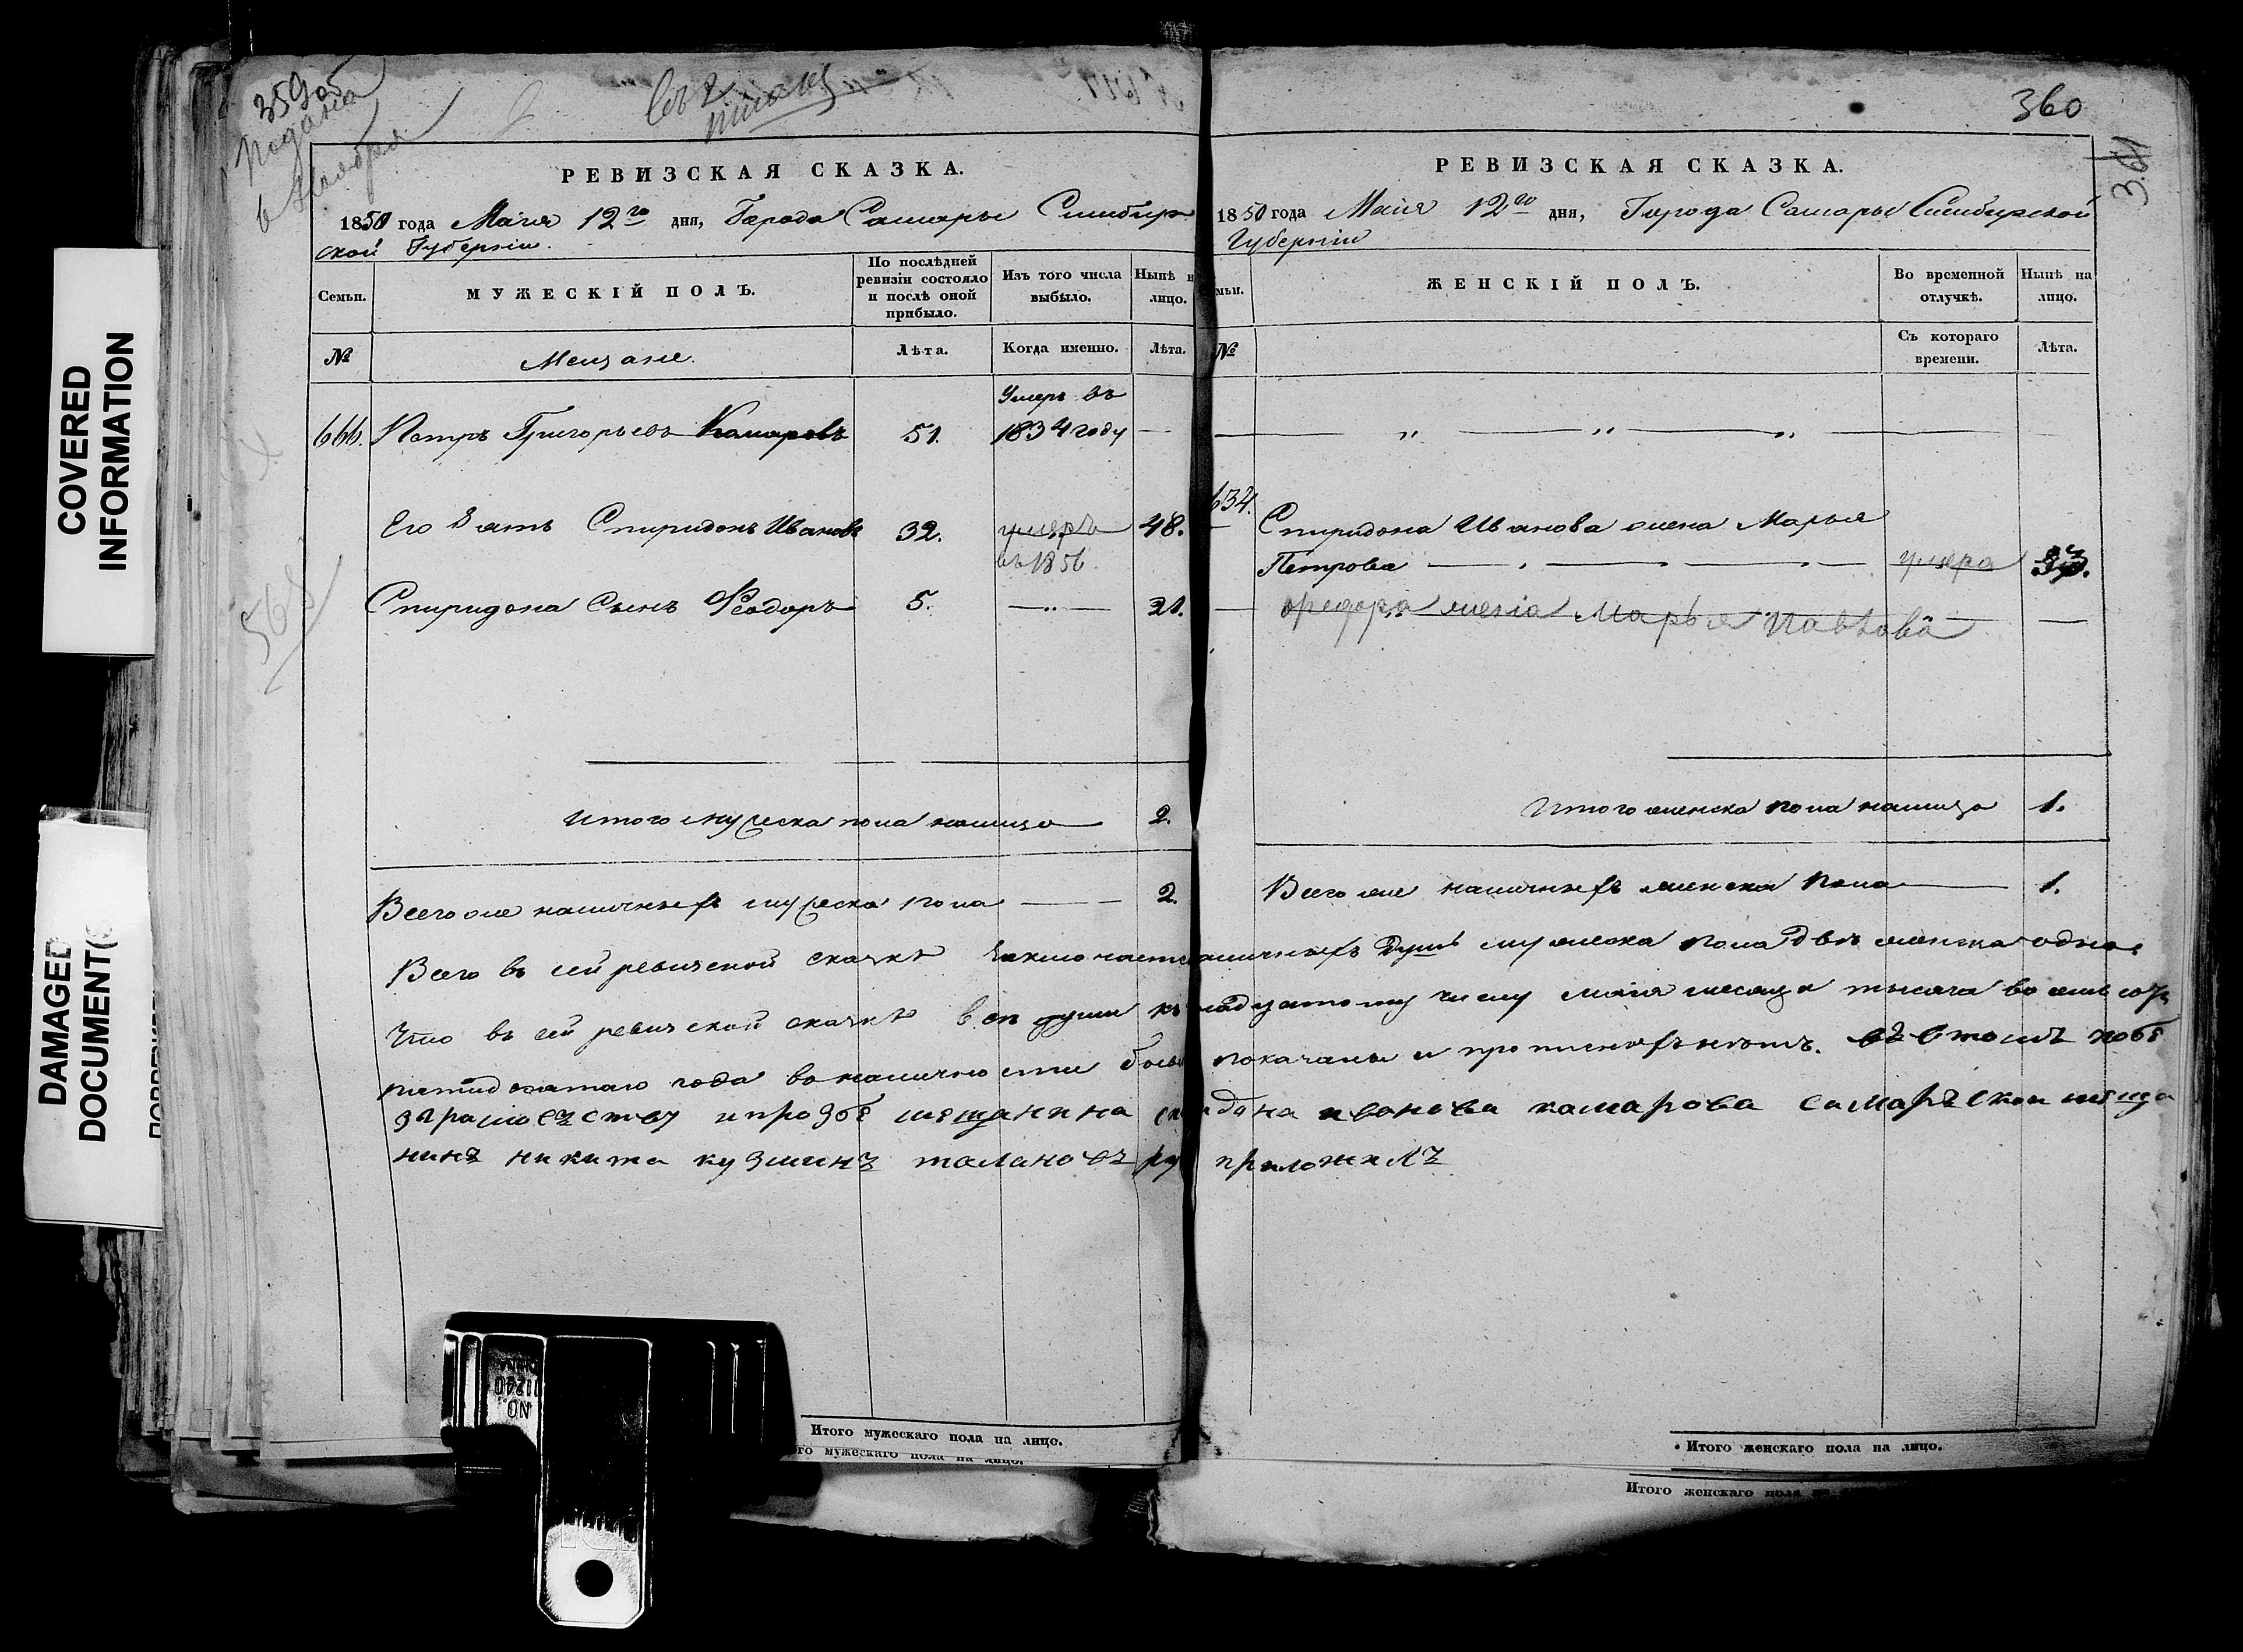 COVERED
INFORMATION
DAMAGED
DOCUMENT(S
359 об
Подана
6 Ноября
РЕВИЗСКАЯ СКАЗКА.
1850 года Маія 12го дня, Города Самары Симбир
ской Губерніи.
Семьи.
МУЖЕСКІЙ ПОЛЪ.
По послѣдней
ревизіи состояло
и послѣ оной
прибыло.
Изъ того числа
выбыло.
Нынѣ н
лицо.
№
Мещане.
Лѣта.
Когда именно.
Лѣта.
666. Петръ Григорьевъ Камаровъ 51. Умеръ въ
1834 году —
Его Зять Спиридонъ Ивановъ 32. умеръ 48.
въ 1856.
Спиридона Сынъ Феодоръ 5. —"— 21.
Итого мужеска пола налицо 2.
Всего же наличныхъ мужеска пола — 2.
360
361
РЕВИЗСКАЯ СКАЗКА.
1850 года Маія 12го дня, Города Самары Симбирской
Губерніи
мьи.
ЖЕНСКІЙ ПОЛЪ.
Во временной
отлучкѣ.
Нынѣ на
лицо.
№
Съ котораго
времени.
Лѣта.
— " — " — " —
634.
Спиридона Иванова жена Марья
Петрова — умера
Федора жена Марья Павлова —
Итого женска пола налицо 1.
Всего же наличныхъ женска пола — 1.
Всего въ сей ревизской сказкѣ заключаетс аличныхъ Душъ мужеска пола двѣ женска одна.
Что въ сей ревизской сказкѣ все души къ надцатому числу маія месяца тысяча восемь сотъ
пятидесятаго года во наличности были показаны и прописныхъ нѣтъ. въ томъ побѣ
зграмоцтву и прозбѣ мещанина сп идона иванова камарова самарской меща
нинъ никита кузминъ талановъ ру приложилъ
Итого мужескаго пола на лицо.
го мужескаго пола на лицо.
Итого женскаго пола на лицо.
Итого женскаго пола на